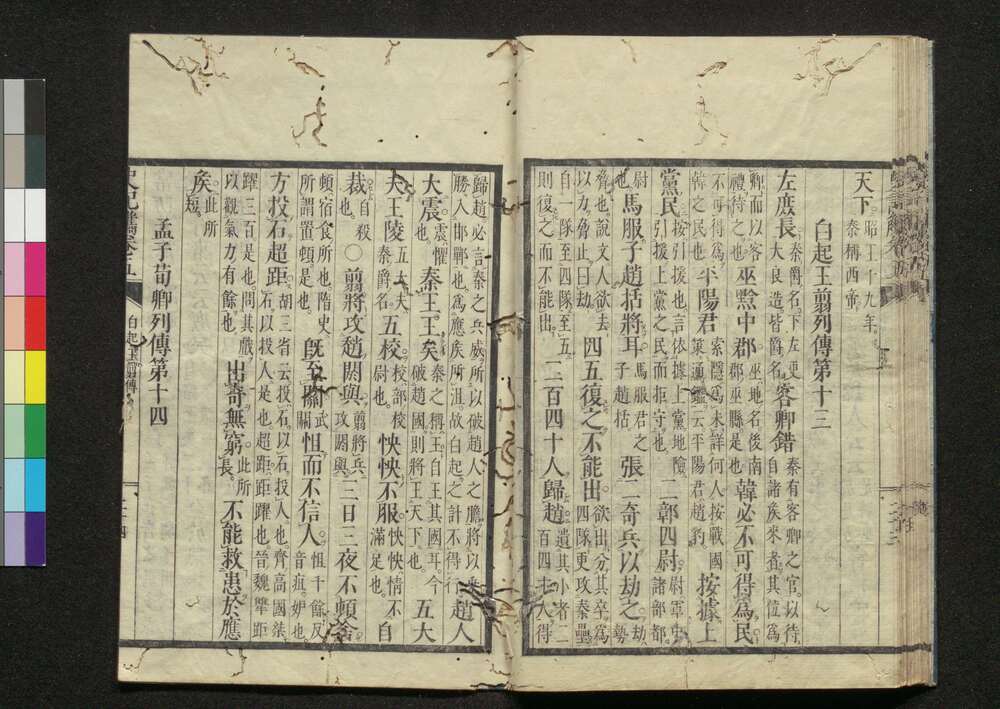 天下。昭王十九年。秦稱西帝。
白起王翦列傳第十三
左庶長。秦爵名。下左更大良造皆爵名。客卿錯秦有客卿之官。以待自諸矦來者。其位爲
卿而以客禮待之也。巫黔中郡。巫地名。後南郡巫縣是也。韓必不可得爲民
不可得爲韓之民也平陽君索隱爲未詳何人按戰國策通鑑云平陽君趙豹按據上
黨民按引援也言依據上黨地險引援上黨之民而拒守也二鄣四尉。尉軍中諸部都
尉也馬服子趙括將耳。馬服君之子趙括張二奇兵以劫之劫勢
脅也。說文人欲去以力脅止曰劫四五復之不能出欲出分其卒爲四隊更攻秦壘
自一隊至四隊至五則復之而不能出。二百四十人歸趙遺其小者二百四十人得
歸趙必言秦之兵威所以破趙人之膽將以乘勝入邯鄲也爲應矦所沮故白起之計不得行趙人
大震。震懼也。秦王王矣秦之稱王自王其國耳。今破趙國則將王天下也。五大
夫王陵五大夫秦爵名。五校校部校尉也怏怏不服怏怏情不滿足也自
裁自殺也。○翦將攻趙閼與翦將兵攻閼與三日三夜不頓舍
頓宿食所也隋史所謂置頓是也。旣至關武關怚而不信人怚干餘反音疽。妒也
方投石超距胡三省云投石以石投人也齊高固桀石以投人是也。超距距躍也晉魏犨距
躍三百是也。問其戲以觀氣力有餘也。出奇無窮。此所長。不能救患於應
矣。此所短。
孟子荀卿列傳第十四